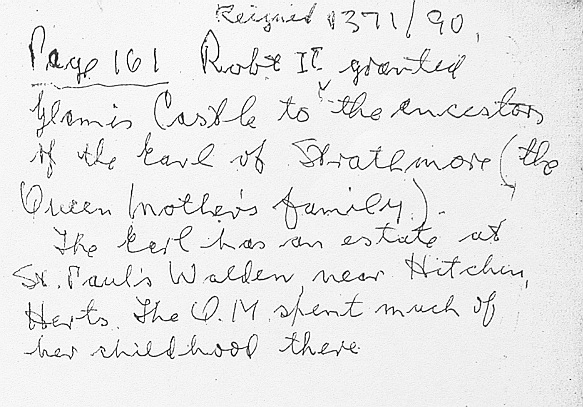 Reigned 1371/90,
Page 161 Robt II granted
Glamis Castle to the ancestors
of the Earl of Strathmore (the
Queen Mother's family).
The Earl has an estate at
St. Paul's Walden, near Hitchin,
Herts. The Q.M. spent much of
her childhood there